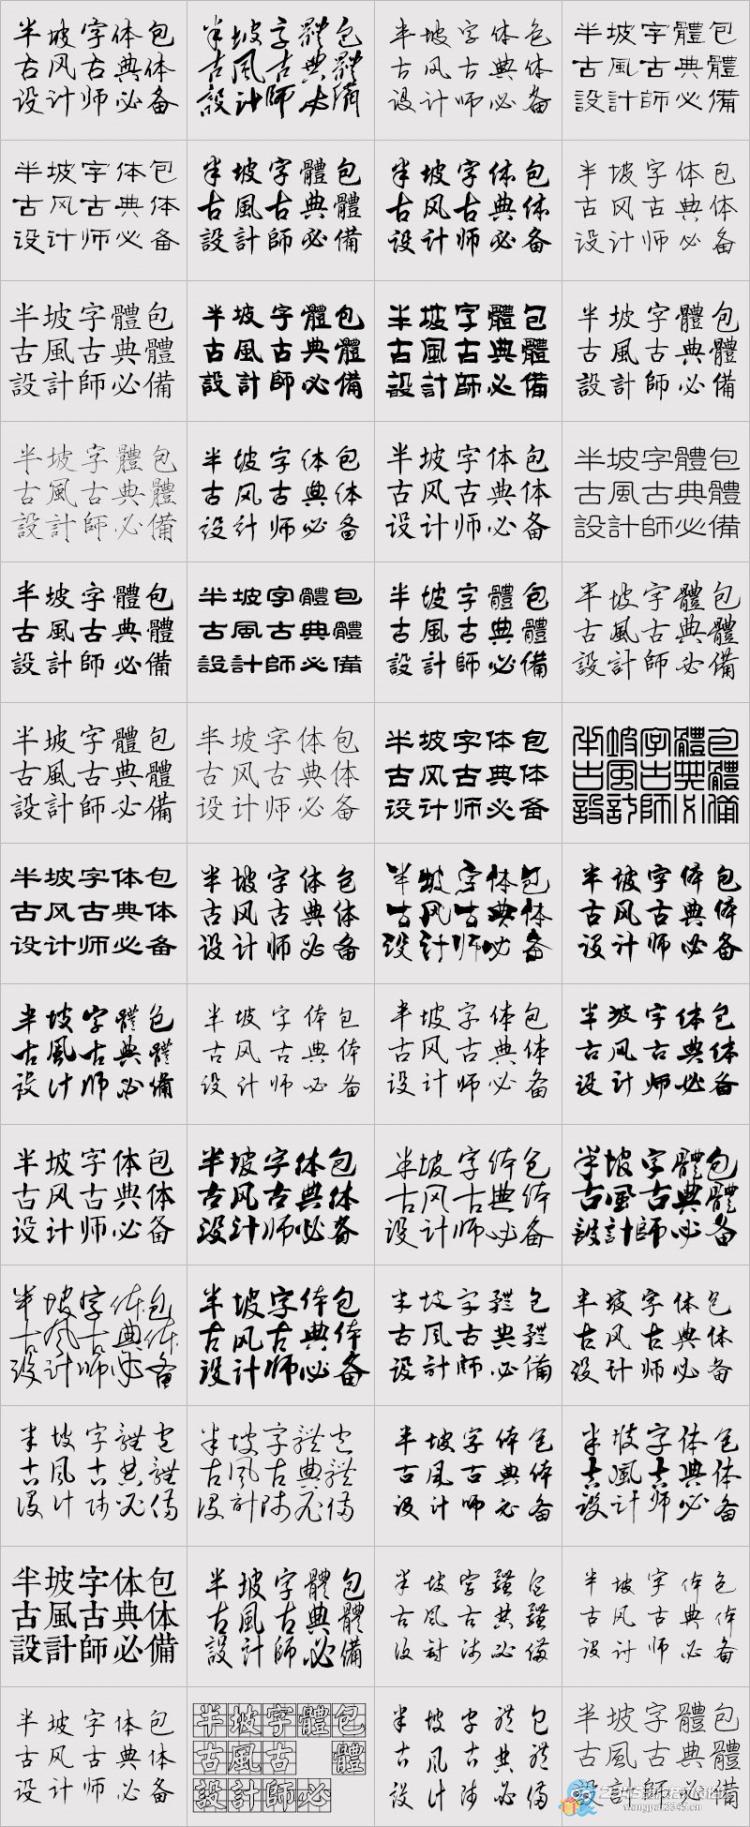 半坡字体包
古风古典体
设计师必备
半坡字體包
古風古典體
設計師必備
半坡字体包
古风古典体
设计师必备
半坡字體包
古風古典體
設計師必備
半坡字体包
古风古典体
设计师必备
半坡字體包
古風古典體
設計師必備
半坡字体包
古风古典体
设计师必备
半坡字体包
古风古典体
设计师必备
半坡字體包
古風古典體
設計師必備
半坡字體包
古風古典體
設計師必備
半坡字體包
古風古典體
設計師必備
半坡字體包
古風古典體
設計師必備
半坡字體包
古風古典體
設計師必備
半坡字体包
古风古典体
设计师必备
半坡字体包
古风古典体
设计师必备
半坡字體包
古風古典體
設計師必備
半坡字體包
古風古典體
設計師必備
半坡字體包
古風古典體
設計師必備
半坡字體包
古風古典體
設計師必備
半坡字體包
古風古典體
設計師必備
半坡字體包
古風古典體
設計師必備
半坡字体包
古风古典体
设计师必备
半坡字体包
古风古典体
设计师必备
半坡字體包
古風古典體
設計師必備
半坡字体包
古风古典体
设计师必备
半坡字体包
古风古典体
设计师必备
半坡字体包
古风古典体
设计师必备
半坡字体包
古风古典体
设计师必备
半坡字體包
古風古典體
设计师必備
半坡字体包
古风古典体
设计师必备
半坡字体包
古风古典体
设计师必备
半坡字体包
古风古典体
设计师必备
半坡字体包
古风古典体
设计师必备
半坡字体包
古风古典体
设计师必备
半坡字体包
古风古典体
设计师必备
半坡字體包
古風古典體
設計師必备
半坡字体包
古风古典体
设计师必备
半坡字体包
古风古典体
设计师必备
半坡字體包
古风古典體
設計師必備
半坡字体包
古风古典体
设计师必备
半坡字體包
古風古典體
设计师必備
半坡字體包
古風古典體
设計师必備
半坡字体包
古风古典体
设计师必备
半坡字体包
古風古典体
设计师必备
半坡字体包
古風古典体
設計師必備
半坡字體包
古風古典體
設計師必備
半坡字體包
古风古典體
设計师必備
半坡字体包
古风古典体
设计师必备
半坡字体包
古风古典体
设计师必备
半坡字體包
古風古 體
設計師必
半坡字體包
古风古典體
设计师必備
半坡字體包
古風古典體
設計師必備
wangpai2345.cn